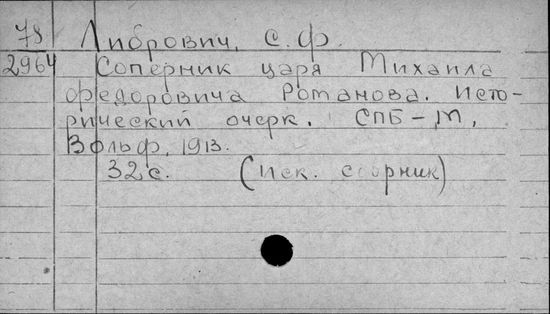 78 Либрович, С.Ф.
2964 Соперник царя Михаила
Федоровича Романова. Исто-
рический очерк. СПБ-М,
Вольф, 1913.
32 с. (Иск. сборник)